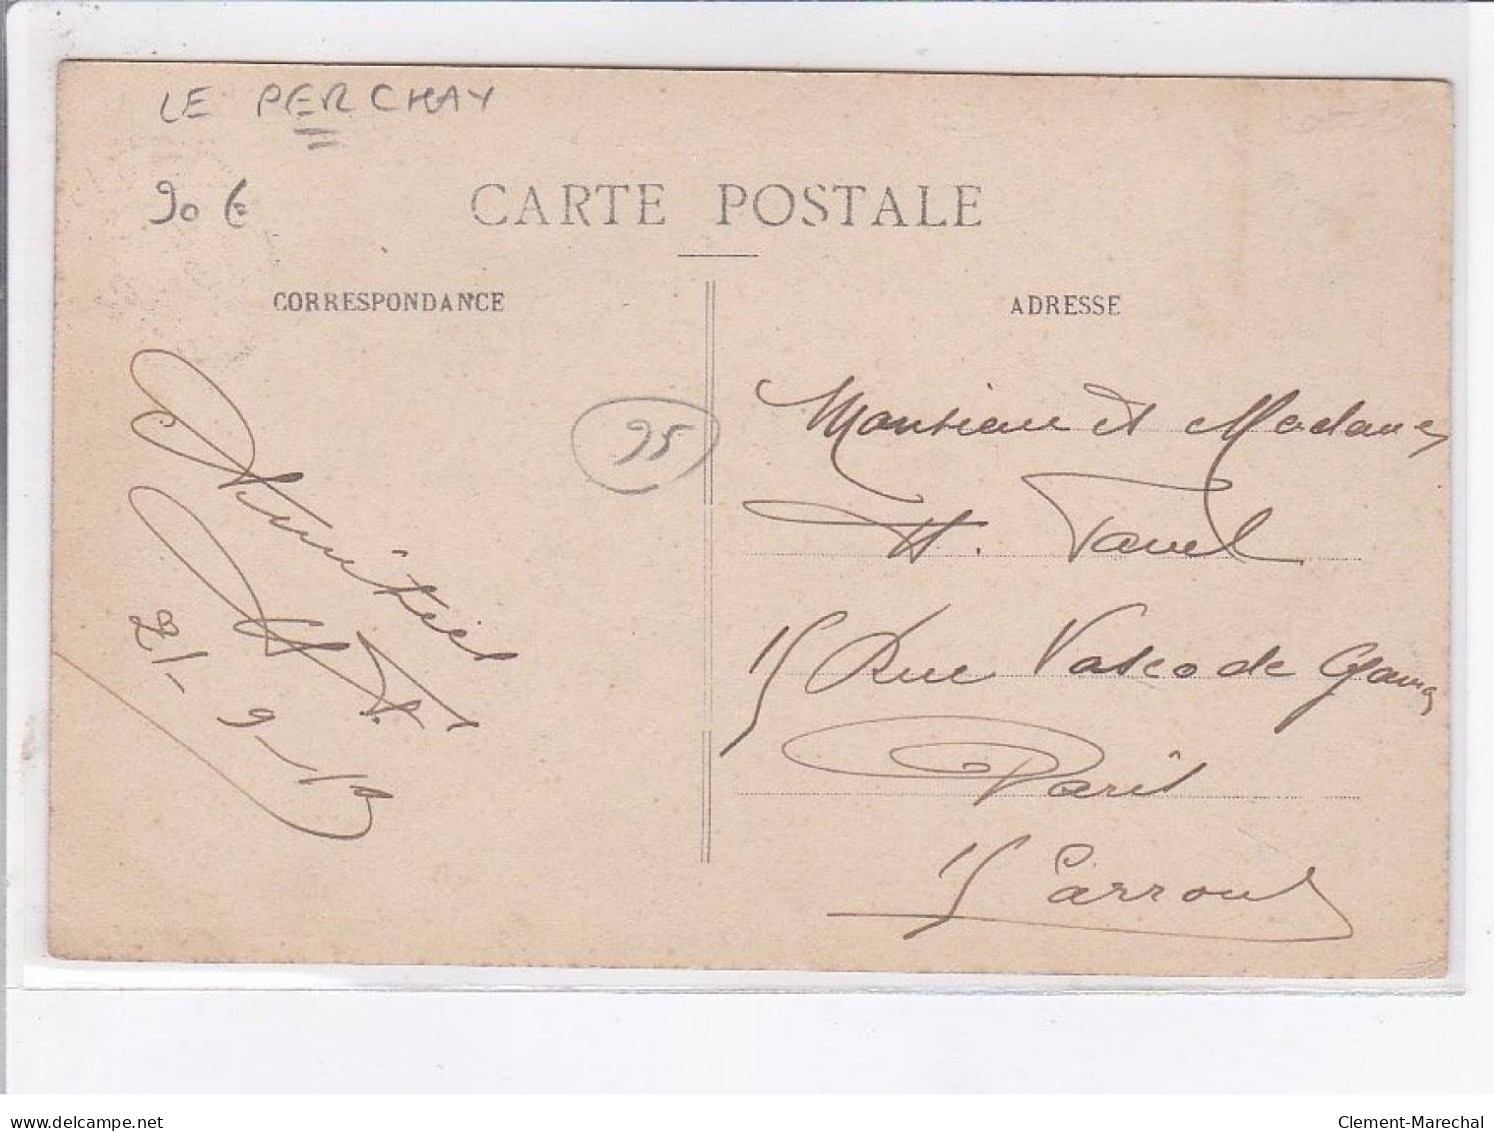 LE PERCHAY
90 €
CARTE POSTALE
CORRESPONDANCE
ADRESSE
95
Amitiés
21-9-13
Monsieur et Madame
H. Tavel
15 Rue Vasco de Gama
Paris
15e arrond
delcampe.net
Clement-Marechal